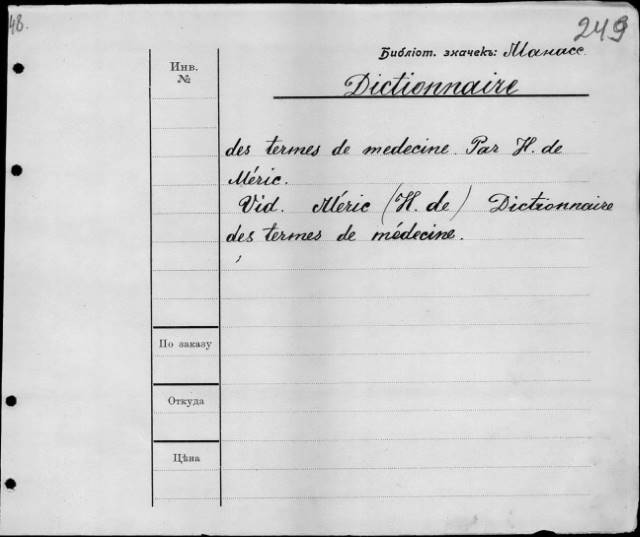 48.
249
Библіот. значекъ: Манасс.
Инв.
№
Dictionnaire
des termes de medecine. Par H. de
Méric.
Vid. Méric (H. de) Dictionnaire
des termes de médecine.
По заказу
Откуда
Цѣна